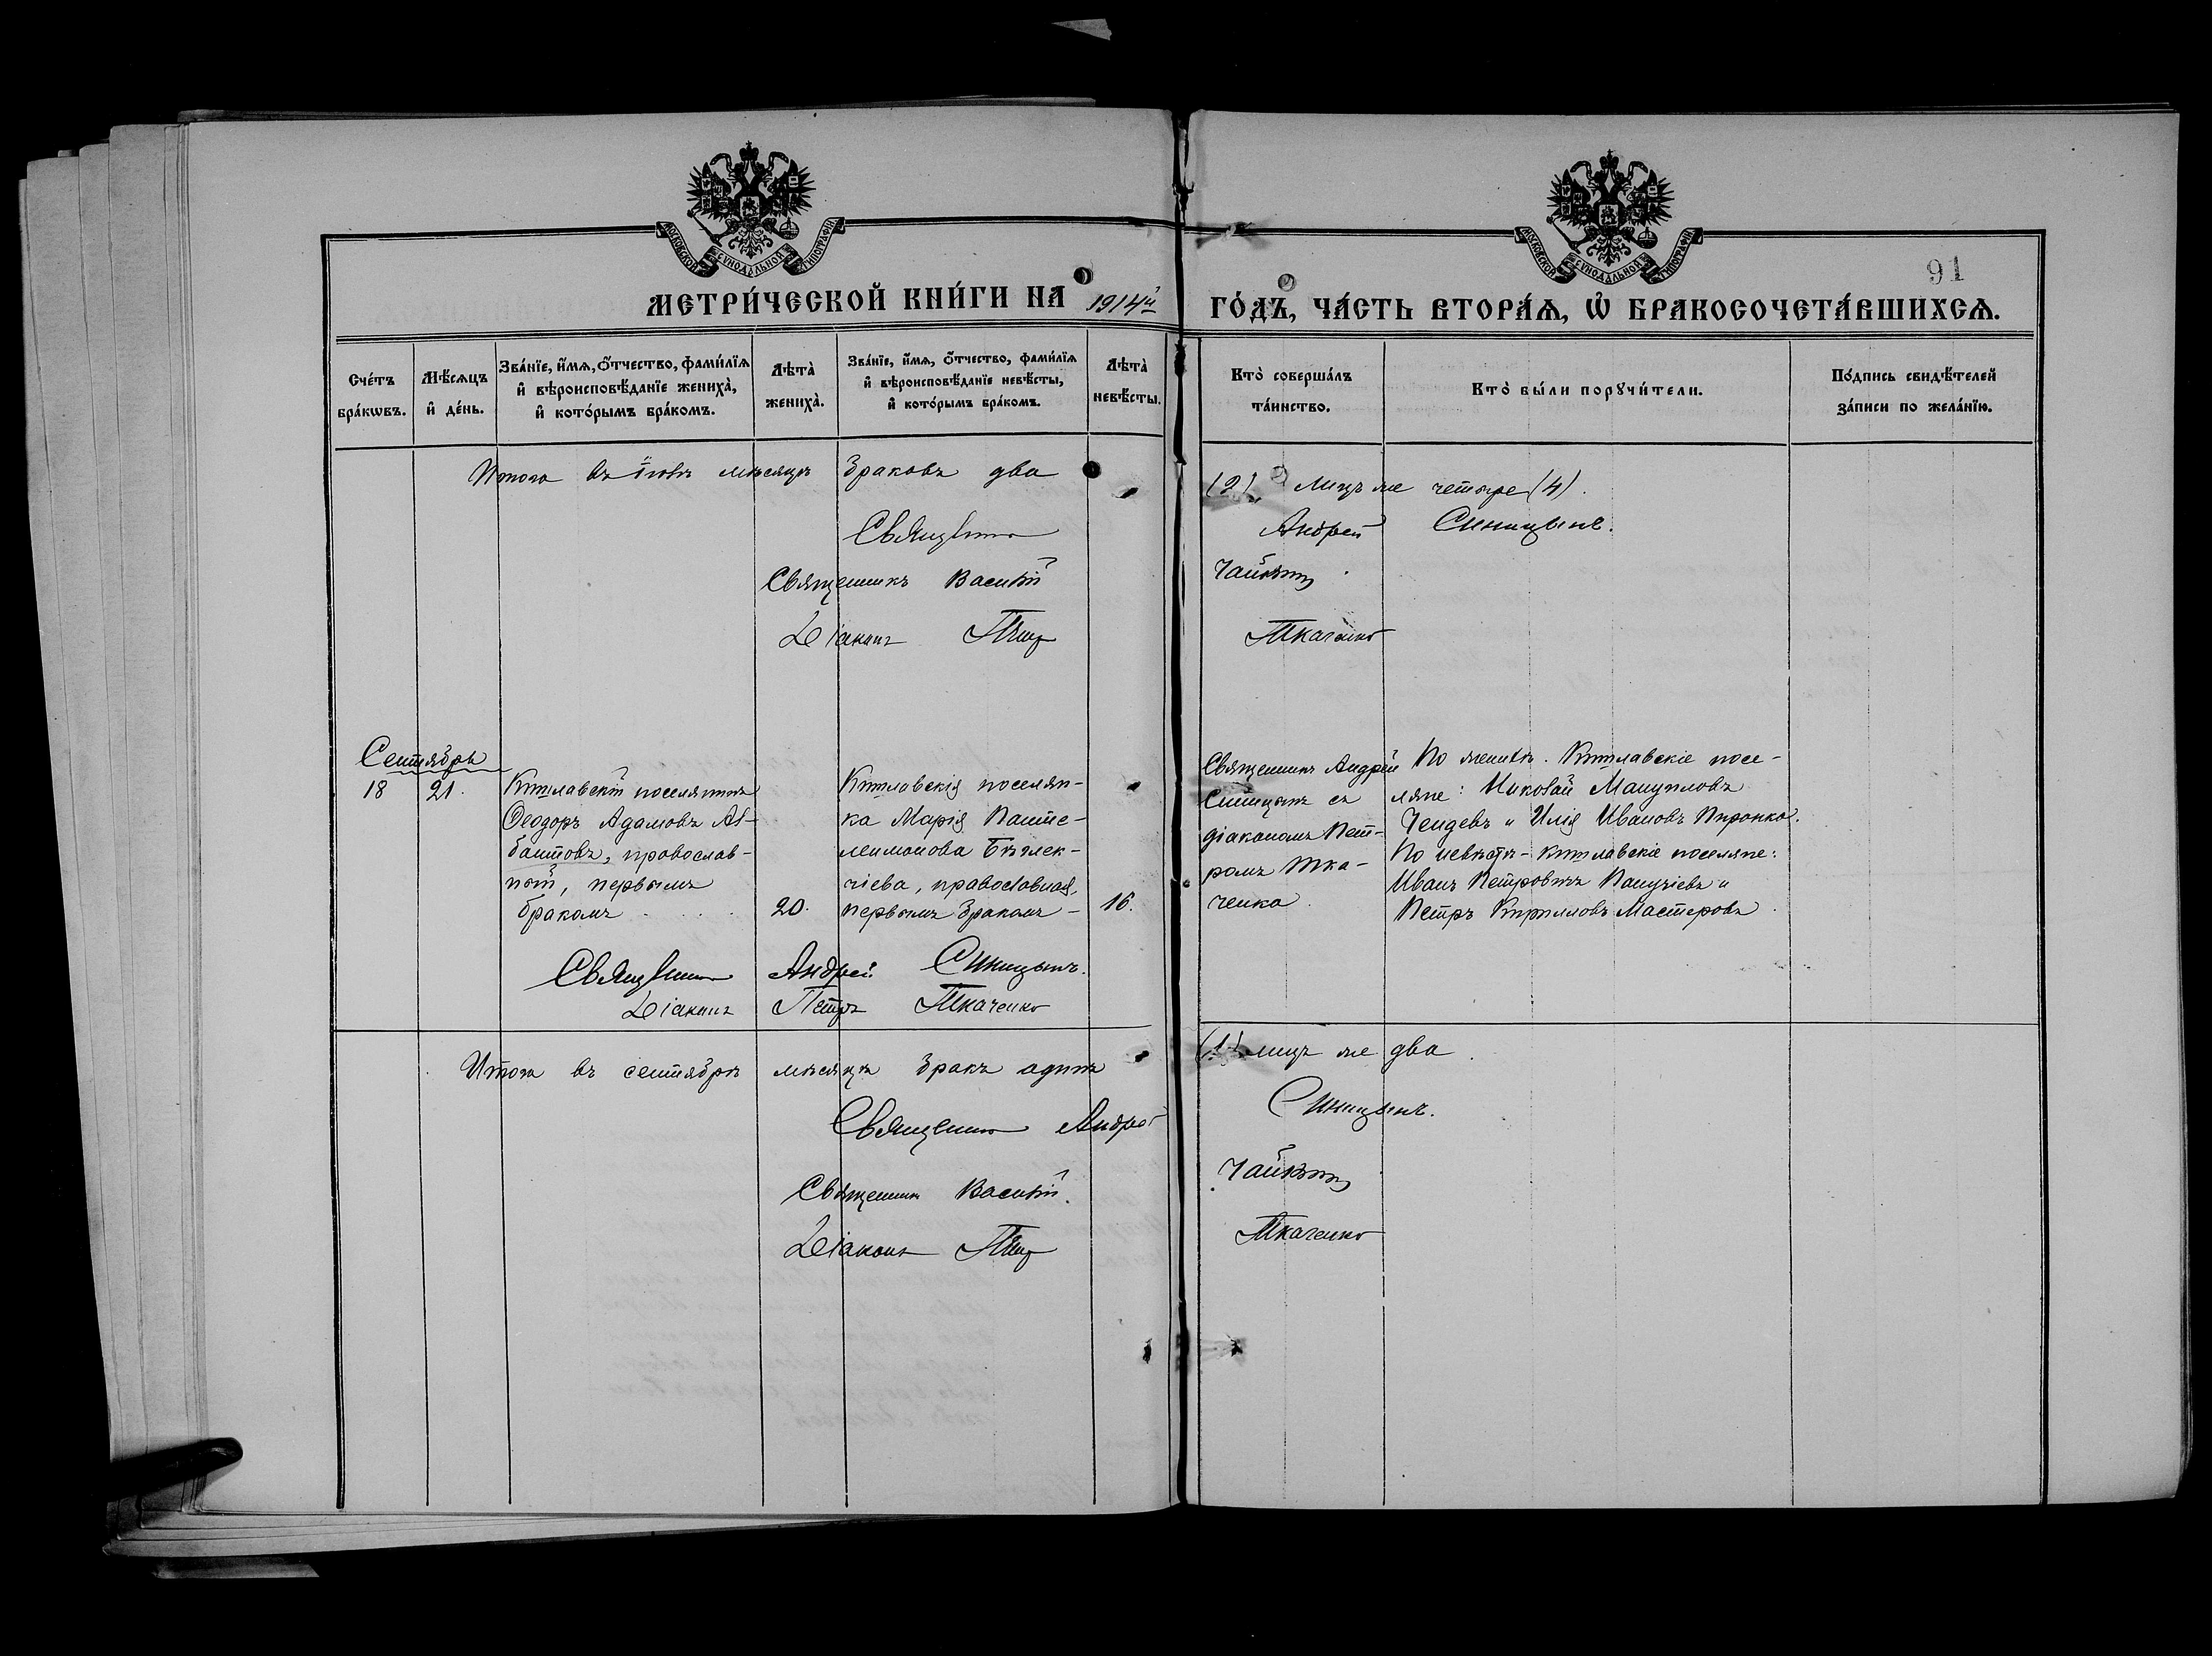 МОСКОВСКОЙ СѴНОДАЛЬНОЙ ТИПОГРАФІИ
МОСКОВСКОЙ СѴНОДАЛЬНОЙ ТИПОГРАФІИ
91
МЕТРИ́ЧЕСКОЙ КНИ́ГИ НА 1914й ГО́ДЪ, ЧА́СТЬ ВТОРА́Ѧ, Ѽ БРАКОСОЧЕТА́ВШИХСѦ.
Сче́тъ бра́кѡвъ.
Мѣ́сѧцъ и҆ де́нь.
Зва́нїе, и҆́мѧ, ѻ҆́тчество, фами́лїѧ и҆ вѣроисповѣ́данїе жениха̀, и҆ кото́рымъ бра́комъ.
Лѣта̀ жениха̀.
Зва́нїе, и҆́мѧ, ѻ҆́тчество, фами́лїѧ и҆ вѣроисповѣ́данїе невѣ́сты, и҆ кото́рымъ бра́комъ.
Лѣта̀ невѣ́сты.
Кто̀ соверша́лъ та́инство.
Кто̀ бы́ли порꙋчи́тели.
По́дпись свидѣ́телей за́писи по жела́нїю.
Итого въ Іюлѣ мѣсяцѣ браковъ два (2) лицъ же четыре (4).
Священникъ Андрей Синицынъ.
Священникъ Василій
Діаконъ Петр Ткаченко
Сентябрь
18
21.
поселянинъ
Ѳеодоръ Адамовъ Ав-
баитовъ, православ-
ный, первымъ
бракомъ
20.
поселян-
ка Марія Панте-
леимонова
чіева, православная,
первымъ бракомъ –
16.
Священникъ Андрей
Синицынъ съ
діакономъ Пет-
ромъ Тка-
ченко.
По женихѣ: посе-
ляне: Николай Мануиловъ
Чендевъ и Илія Ивановъ Пиронко.
По невѣстѣ – поселяне:
Иванъ Петровичъ и
Петръ Кирилловъ Мастеровъ.
Священникъ Андрей Синицынъ.
Діаконъ Петръ Ткаченко
Итого въ сентябрѣ мѣсяцѣ бракъ одинъ (1) лицъ же два.
Священникъ Андрей Синицынъ.
Священникъ Василій
Діаконъ Петр Ткаченко